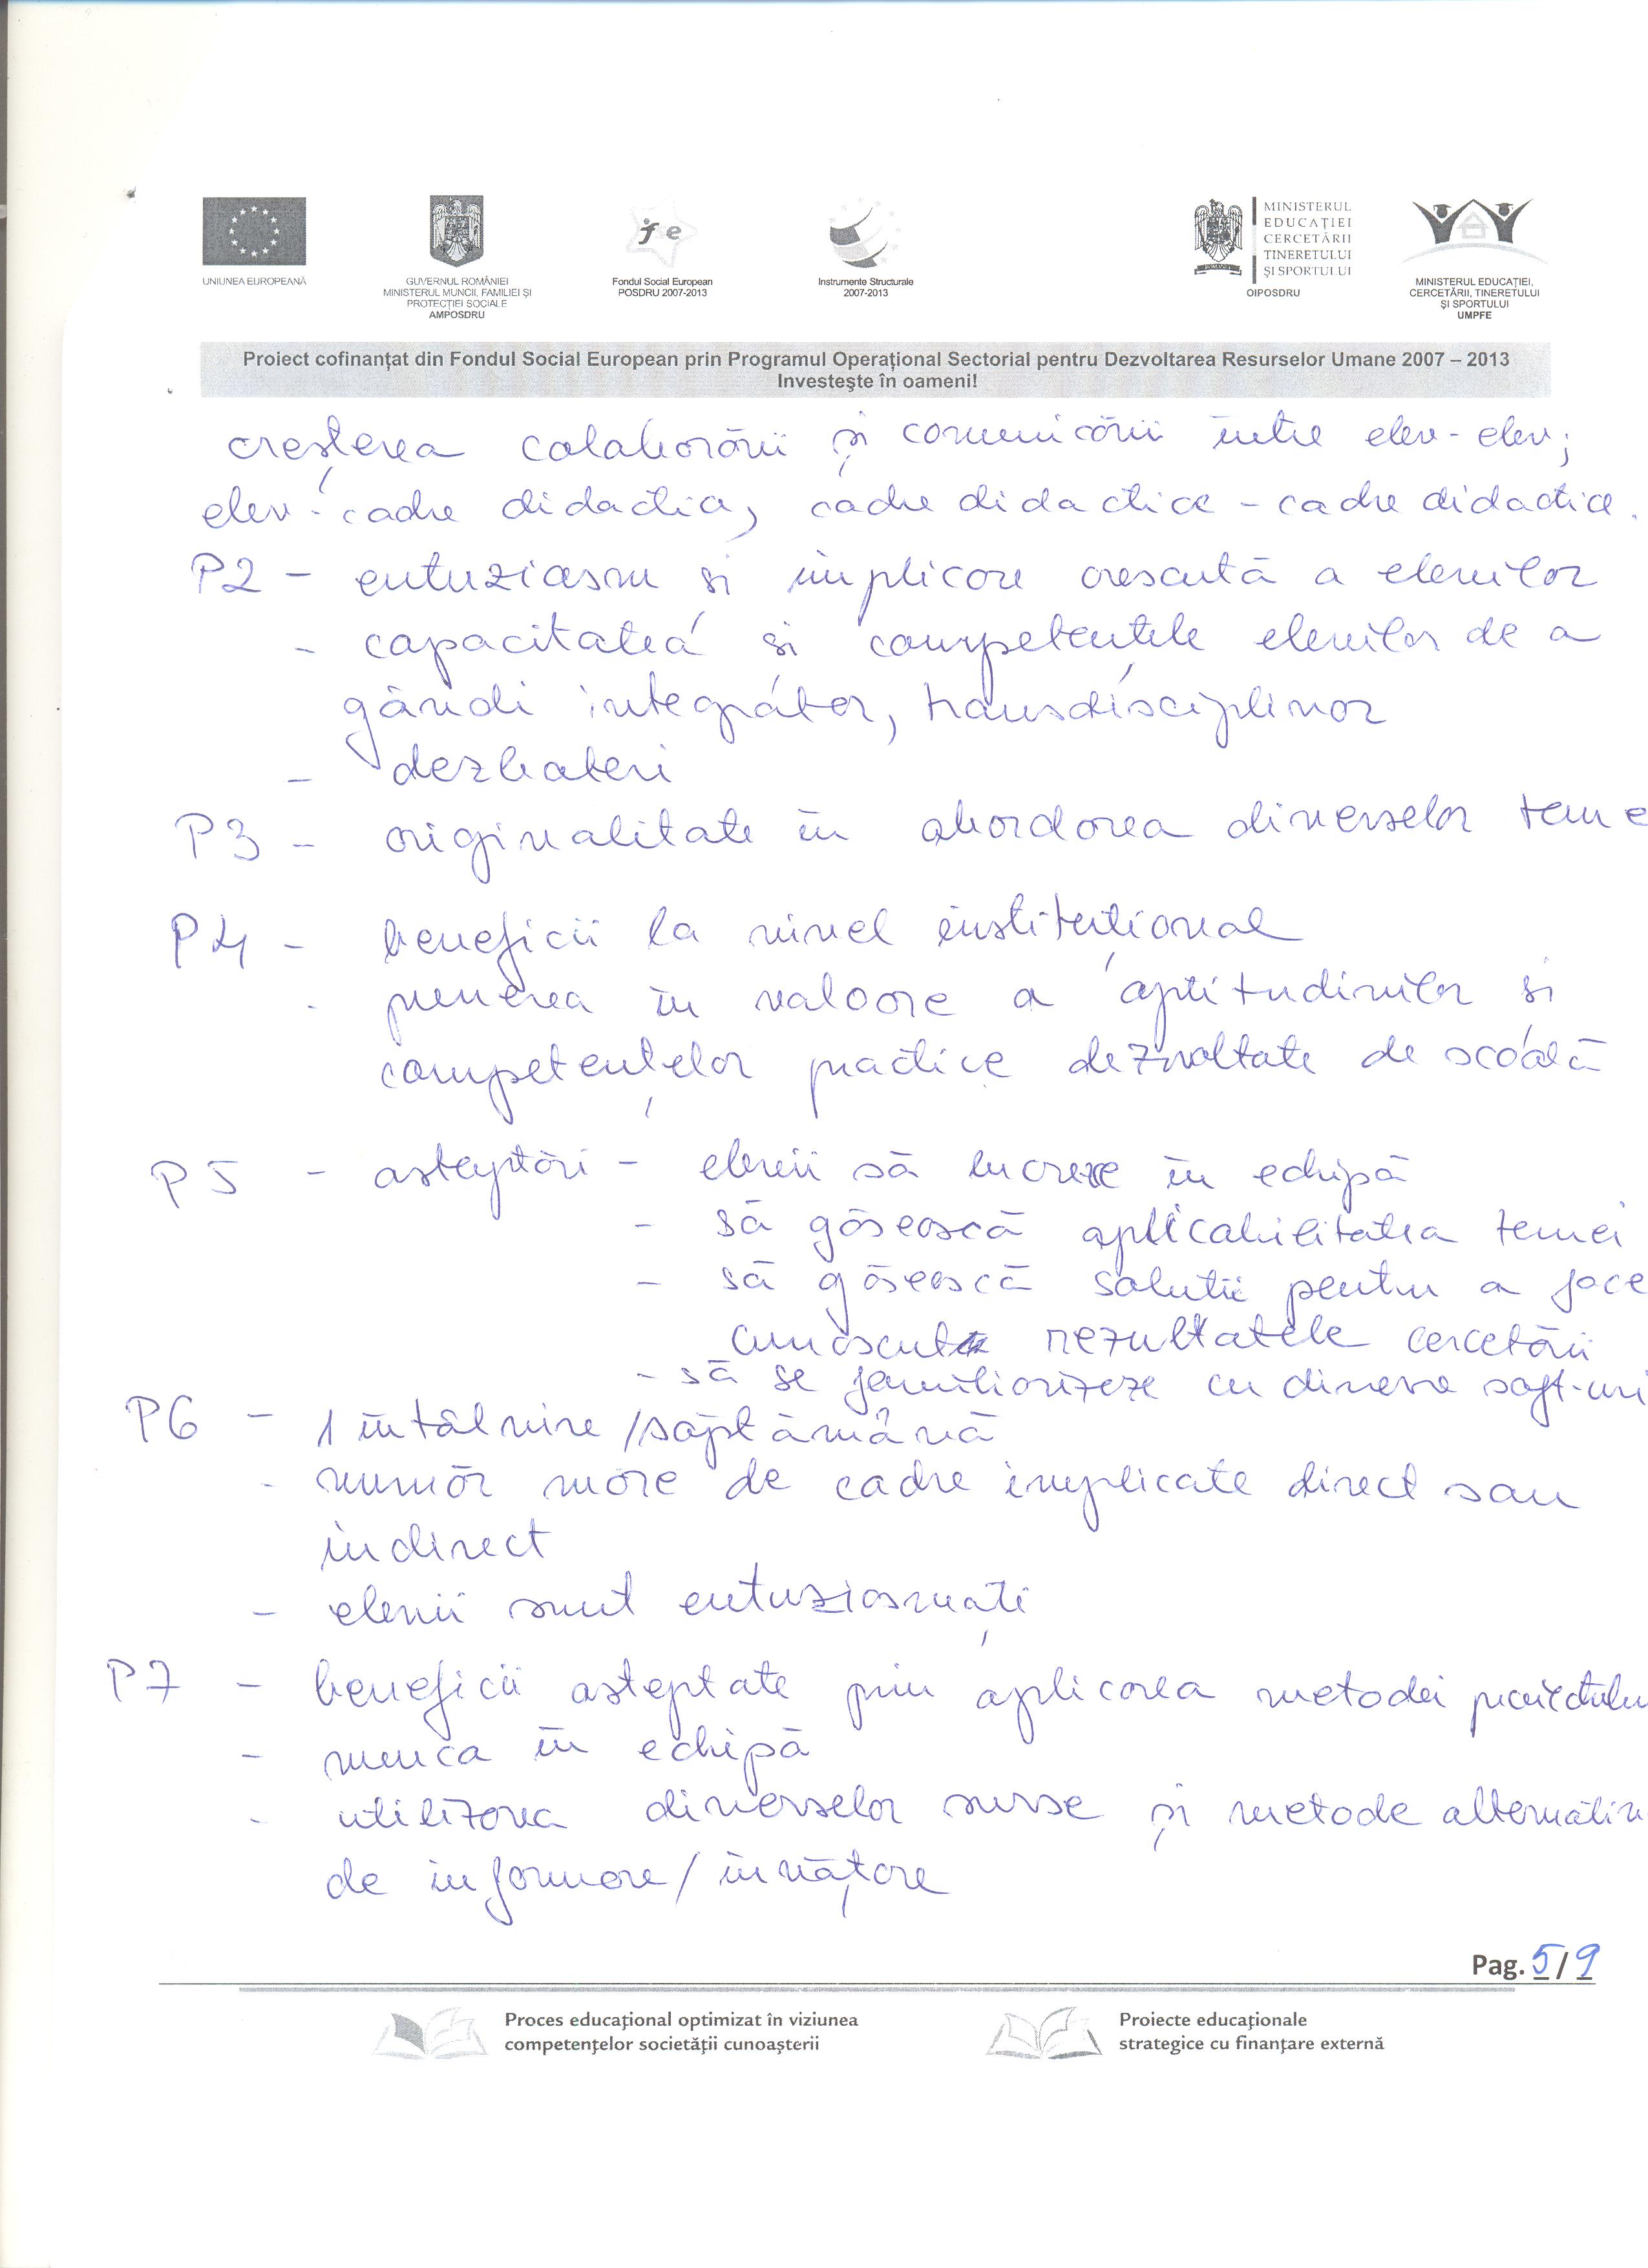 UNIUNEA EUROPEANĂ
GUVERNUL ROMÂNIEI
MINISTERUL MUNCII, FAMILIEI ŞI
PROTECŢIEI SOCIALE
AMPOSDRU
Fondul Social European
POSDRU 2007-2013
Instrumente Structurale
2007-2013
MINISTERUL
EDUCAŢIEI
CERCETĂRII
TINERETULUI
ŞI SPORTULUI
OIPOSDRU
MINISTERUL EDUCAŢIEI,
CERCETĂRII, TINERETULUI
ŞI SPORTULUI
UMPFE
Proiect cofinanţat din Fondul Social European prin Programul Operaţional Sectorial pentru Dezvoltarea Resurselor Umane 2007 – 2013
Investeşte în oameni!
creșterea colaborării și comunicării între elev-elev;
elev-cadre didactice, cadre didactice - cadre didactice.
P2 - entuziasm si implicare crescută a elevilor
- capacitatea și competențele elevilor de a
gândi integrator, transdisciplinar
- dezbateri
P3 - originalitate în abordarea diverselor teme
P4 - beneficii la nivel instituțional
- punerea în valoare a aptitudinilor și
competențelor practice dezvoltate de școală
P5 - asteptări - elevii să lucreze în echipă
- să găsească aplicabilitatea temei
- să găsească soluții pentru a face
cunoscute rezultatele cercetării
- să se familiarizeze cu diverse soft-uri
P6 - 1 întâlnire/săptămână
- număr mare de cadre implicate direct sau
indirect
- elevii sunt entuziasmați
P7 - beneficii asteptate prin aplicarea metodei proiectului
- munca în echipă
- utilizarea diverselor surse și metode alternative
de informare/învățare
Pag. 5/9
Proces educaţional optimizat în viziunea
competenţelor societăţii cunoaşterii
Proiecte educaţionale
strategice cu finanţare externă